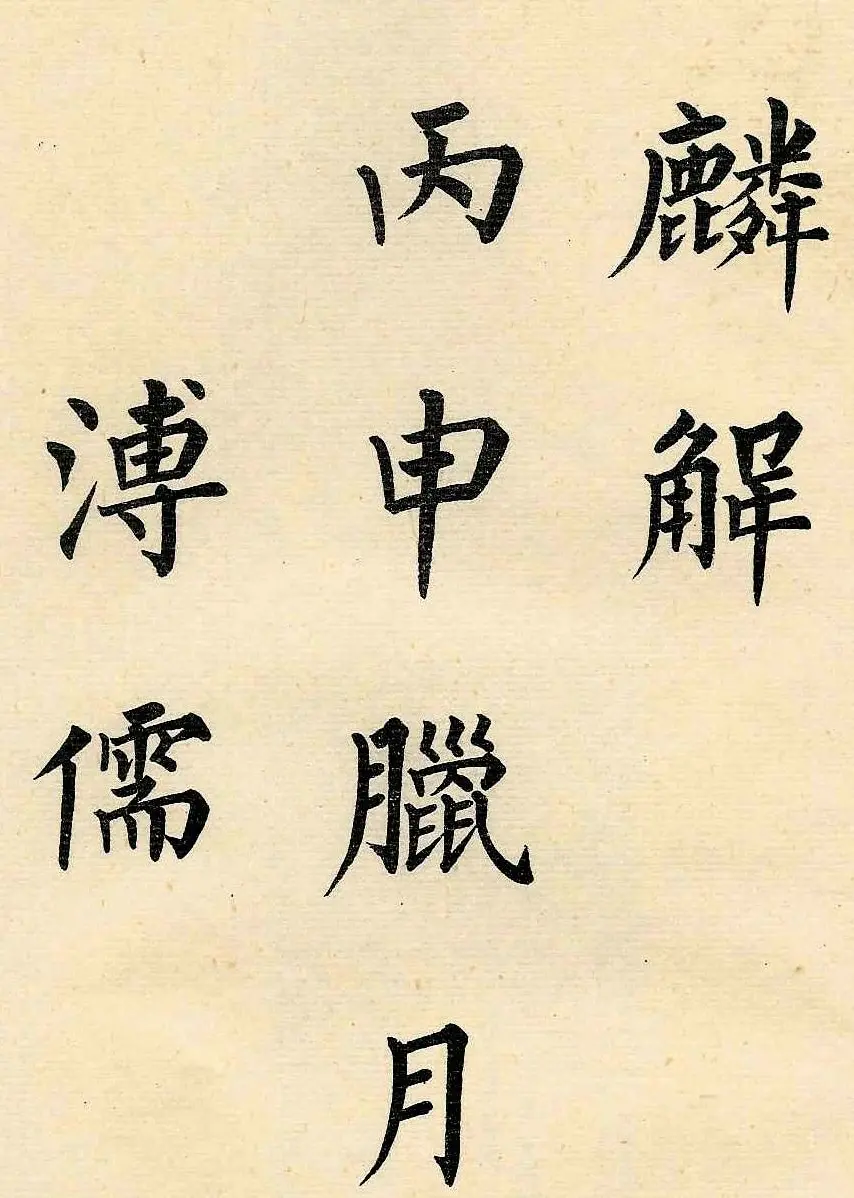 麟解
丙申臘月
溥儒